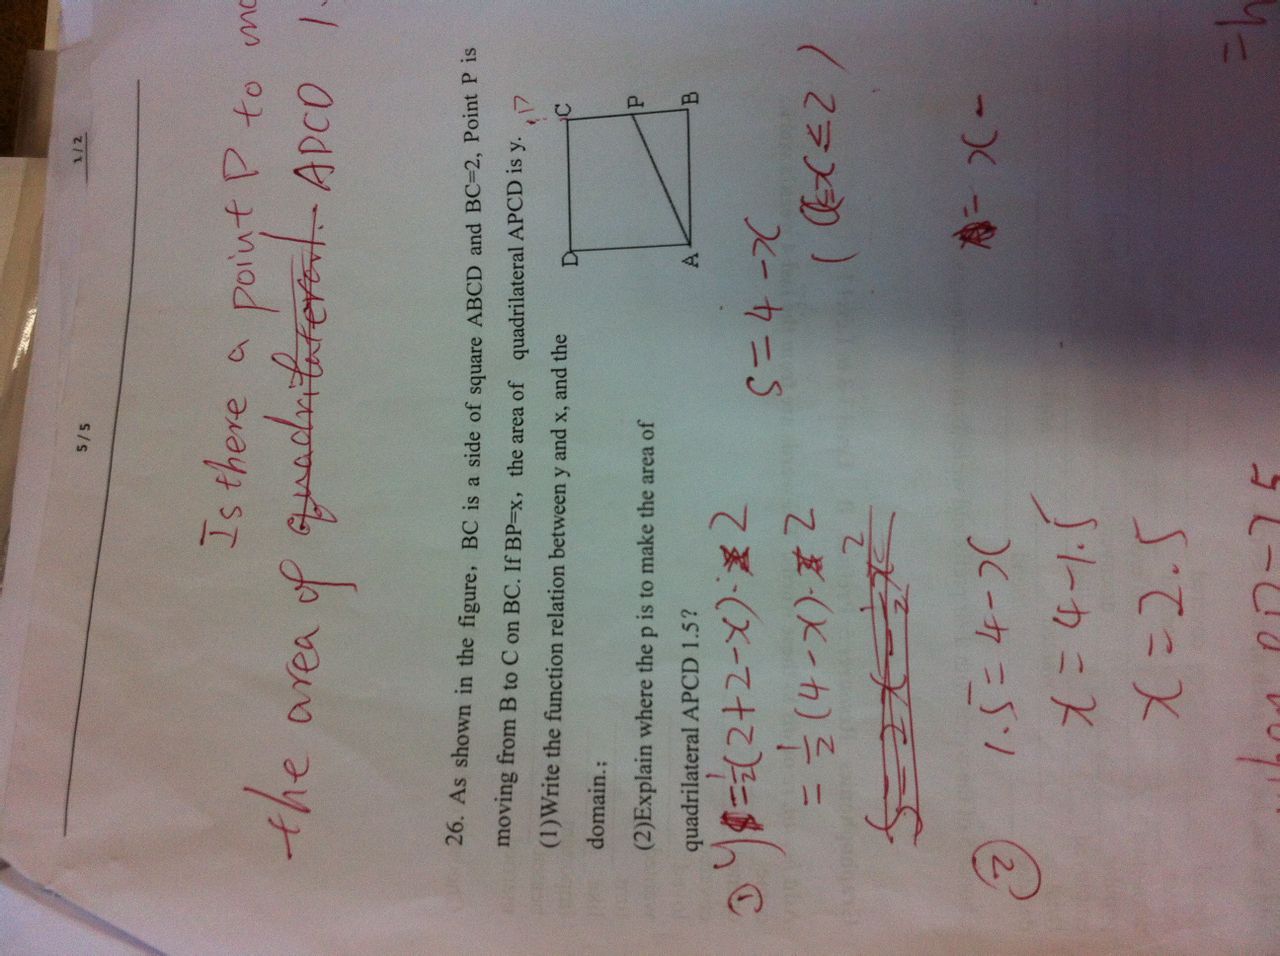 5/5
1/2
Is there a point P to
the area of quadrilateral APCD
26. As shown in the figure, BC is a side of square ABCD and BC=2, Point P is
moving from B to C on BC. If BP=x, the area of quadrilateral APCD is y.
(1)Write the function relation between y and x, and the
domain.;
(2)Explain where the p is to make the area of
quadrilateral APCD 1.5?
D
C
P
A
B
① y = ½(2+2-x)·2
= ½(4-x)·2
S = 4-x
(0≤x≤2)
② 1.5 = 4-x
x = 4-1.5
x = 2.5
= x -